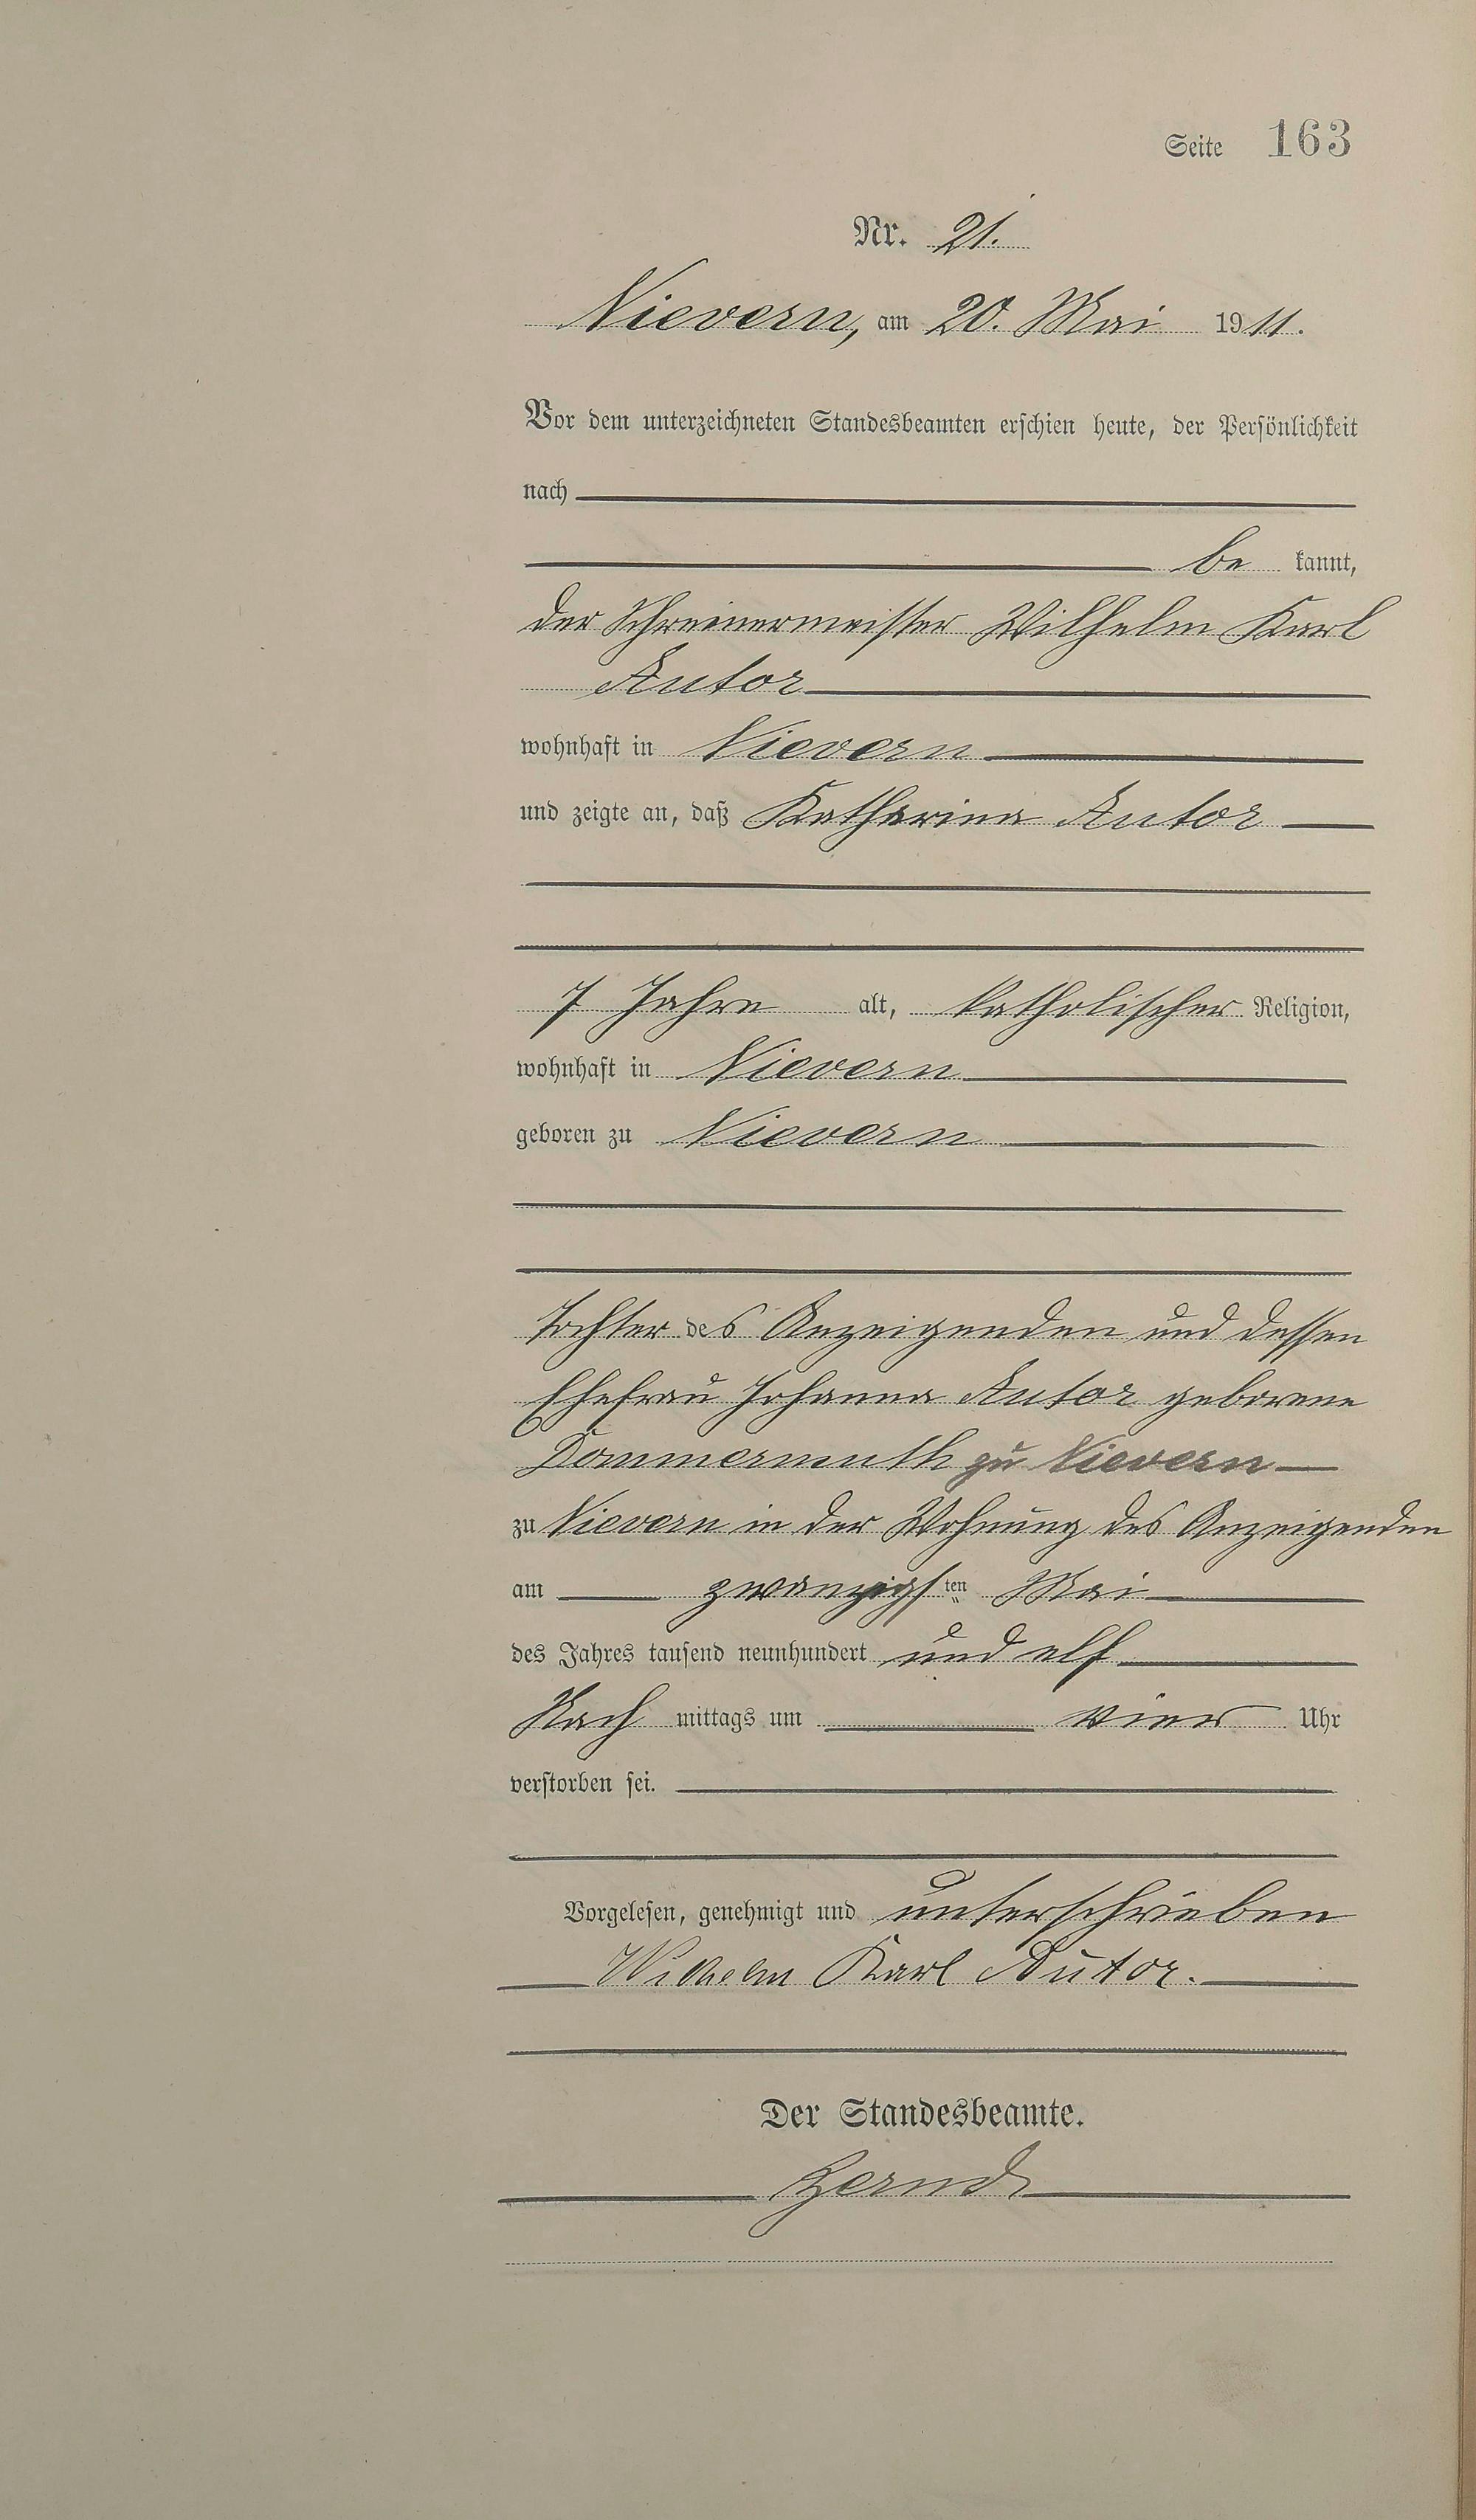 Seite 163
Nr. 21.
Nievern, am 20. Mai 1911.
Vor dem unterzeichneten Standesbeamten erschien heute, der Persönlichkeit
nach
be kannt,
der Schreinermeister Wilhelm Karl
Autor
wohnhaft in Nievern
und zeigte an, daß Katharina Autor
7 Jahre alt, katholischer Religion,
wohnhaft in Nievern
geboren zu Nievern
Tochter des Anzeigenden und dessen
Ehefrau Johanna Autor geborene
Dommermuth zu Nievern
zu Nievern in der Wohnung des Anzeigenden
am zwanzigsten Mai
des Jahres tausend neunhundert und elf
Nach mittags um vier Uhr
verstorben sei.
Vorgelesen, genehmigt und unterschrieben
Wilhelm Karl Autor.
Der Standesbeamte.